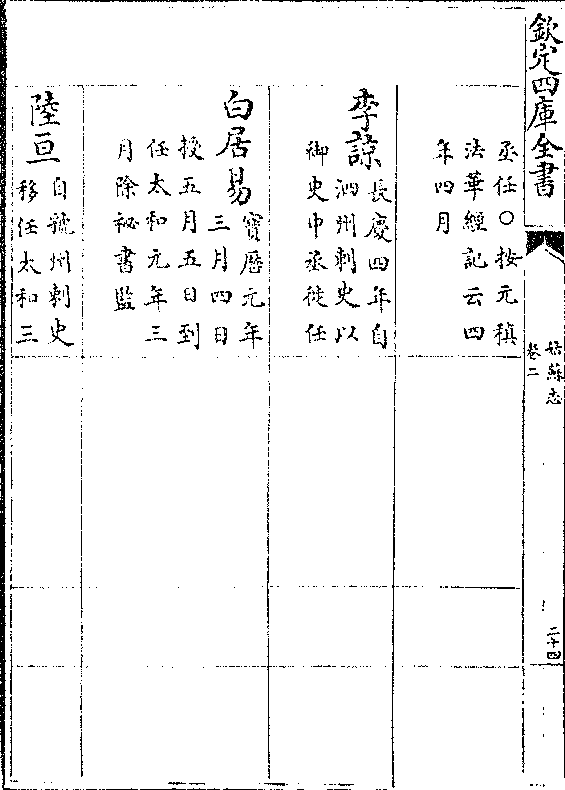 欽定四庫全書
姑蘇志
卷二
二十四
丞任○按元稹
法華經記云四
年四月
李諒
長慶四年自
泗州刺史以
御史中丞徙任
白居易
寶厯元年
三月四日
授五月五日到
任太和元年三
月除祕書監
陸亘
自虢州刺史
移任太和三